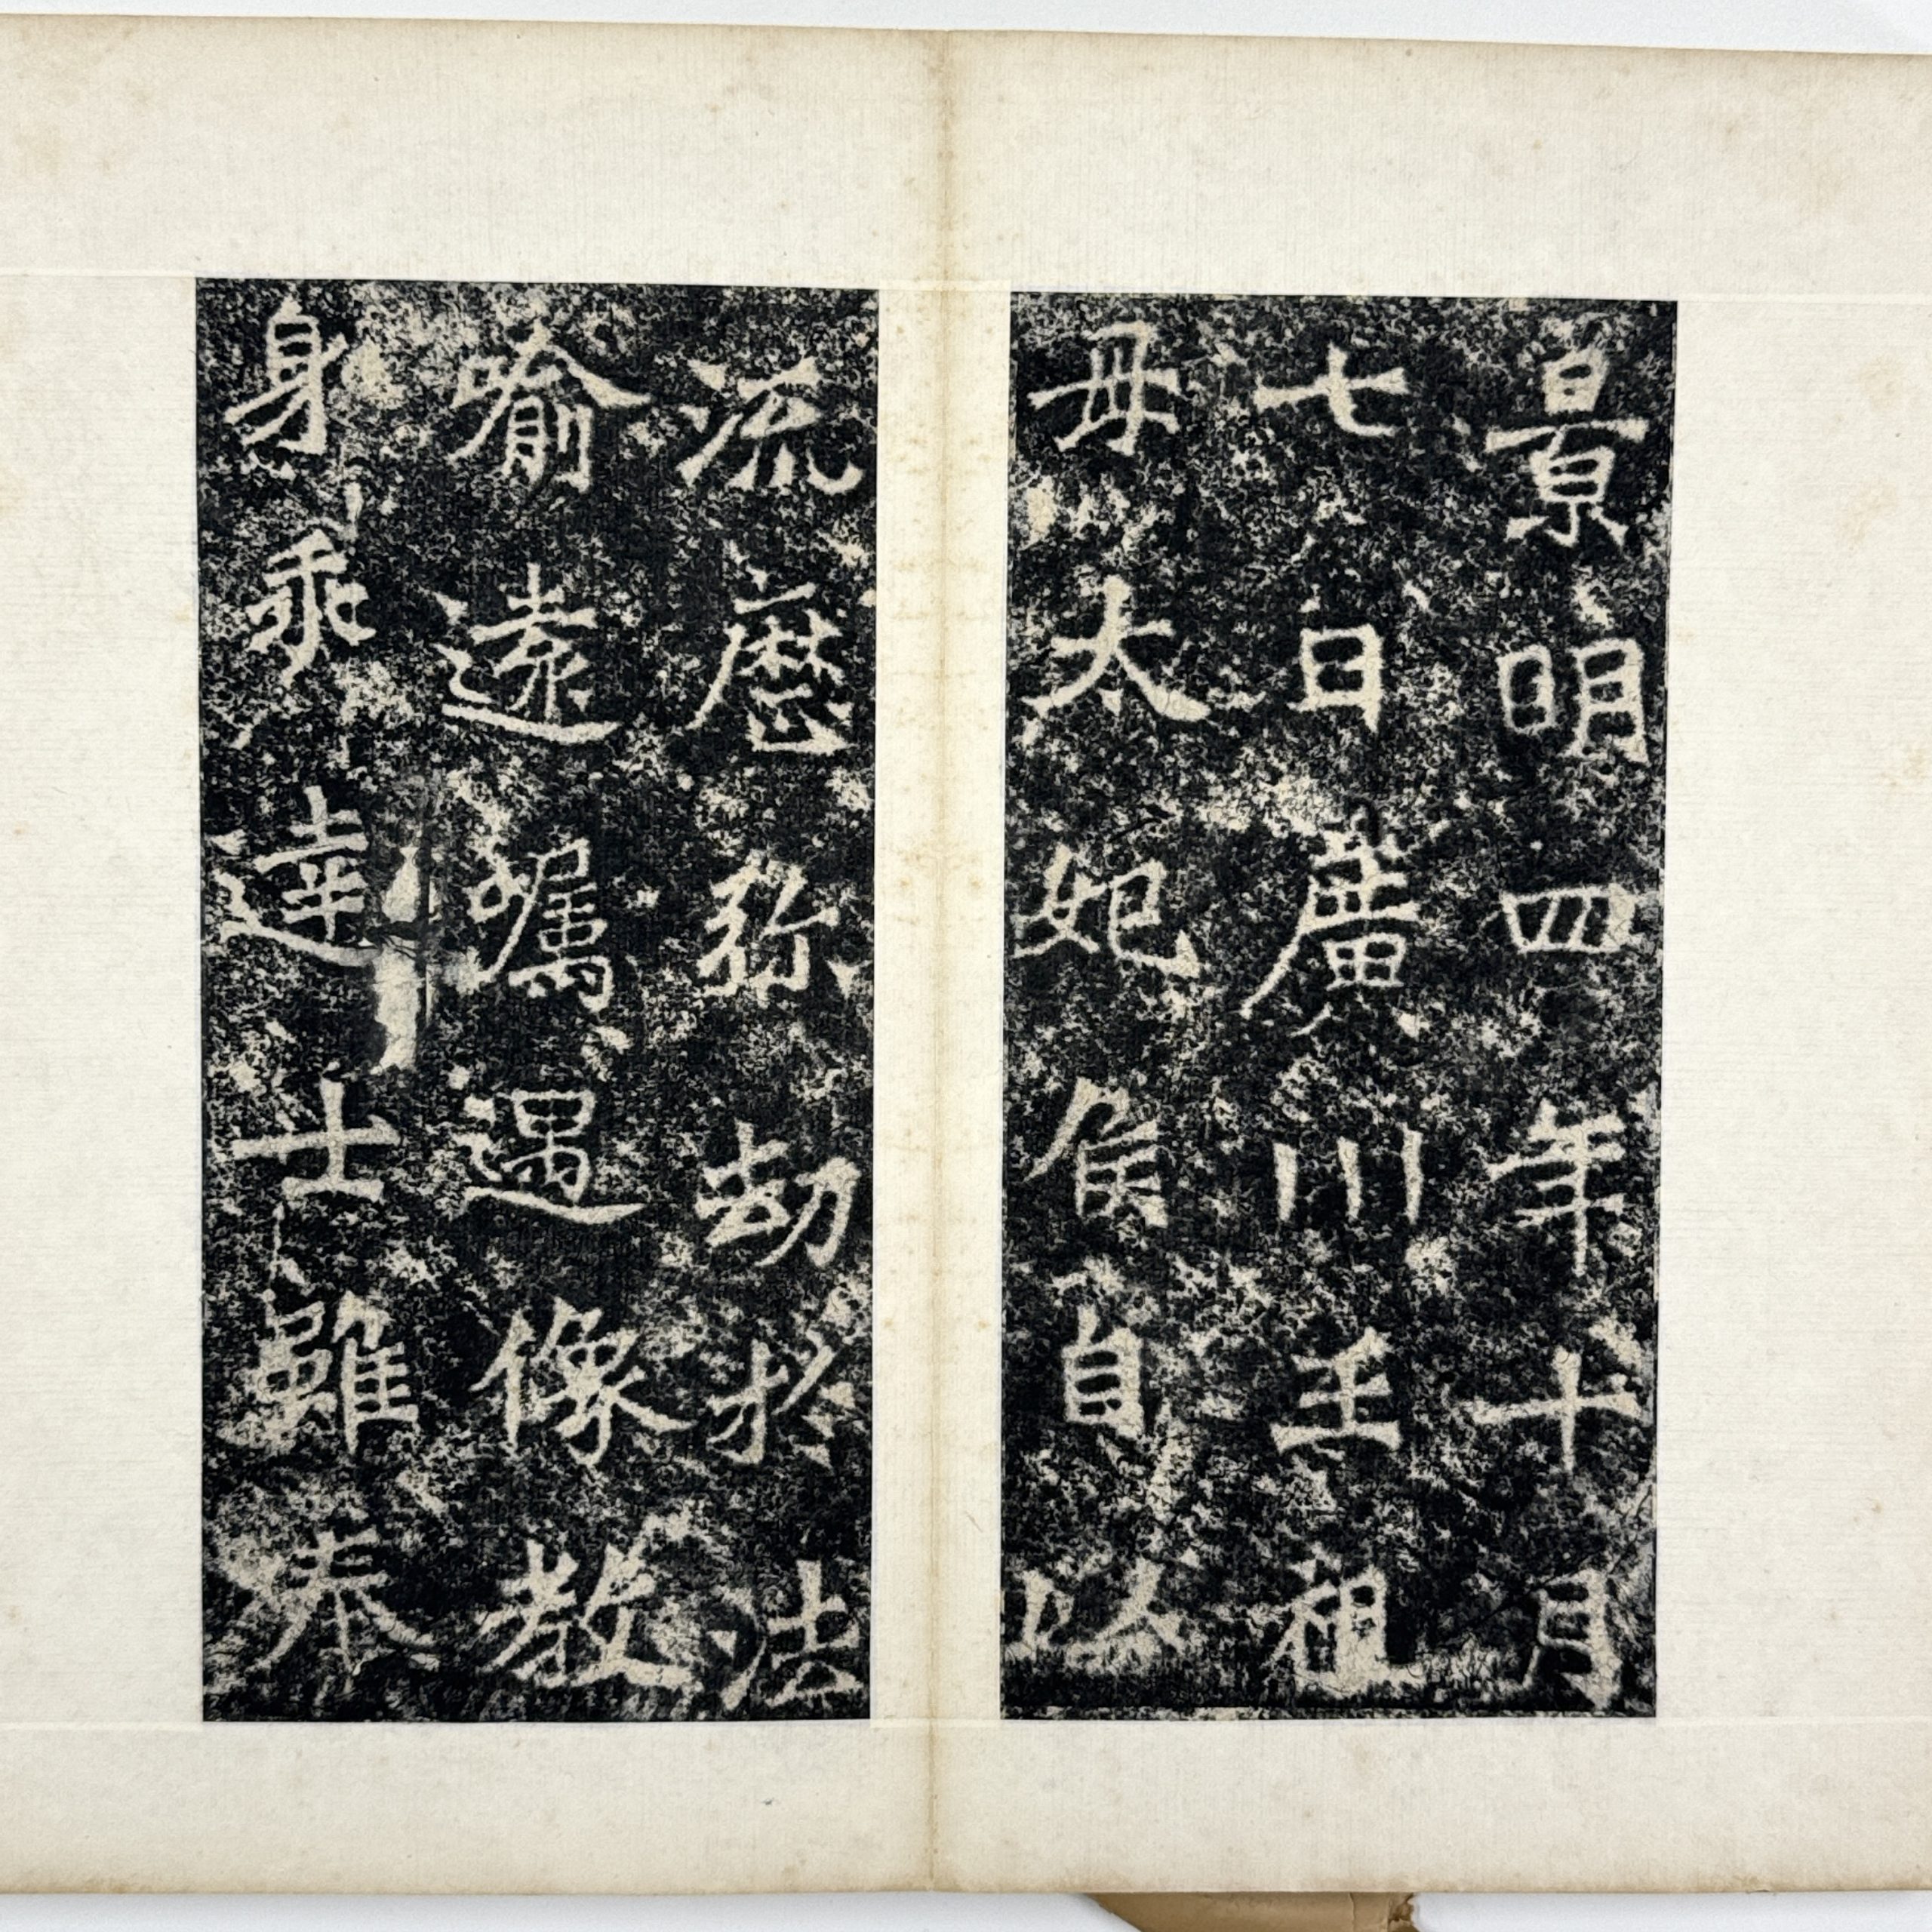 景明四年十月
七日廣川王祖
母太妃侯自以
流歷弥劫於法
喻遠囑遇像教
身乘達士雖奉